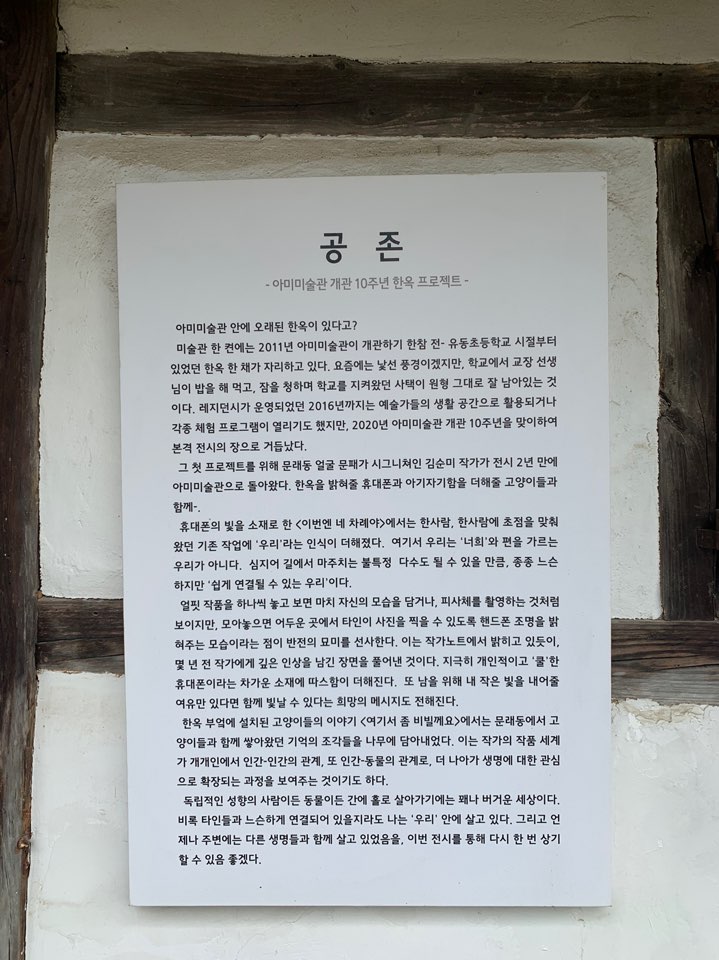 공 존
- 아미미술관 개관 10주년 한옥 프로젝트 -
아미미술관 안에 오래된 한옥이 있다고?
미술관 한 켠에는 2011년 아미미술관이 개관하기 한참 전- 유동초등학교 시절부터
있었던 한옥 한 채가 자리하고 있다. 요즘에는 낯선 풍경이겠지만, 학교에서 교장 선생
님이 밥을 해 먹고, 잠을 청하며 학교를 지켜왔던 사택이 원형 그대로 잘 남아있는 것
이다. 레지던시가 운영되었던 2016년까지는 예술가들의 생활 공간으로 활용되거나
각종 체험 프로그램이 열리기도 했지만, 2020년 아미미술관 개관 10주년을 맞이하여
본격 전시의 장으로 거듭났다.
그 첫 프로젝트를 위해 문래동 얼굴 문패가 시그니쳐인 김순미 작가가 전시 2년 만에
아미미술관으로 돌아왔다. 한옥을 밝혀줄 휴대폰과 아기자기함을 더해줄 고양이들과
함께-.
휴대폰의 빛을 소재로 한 <이번엔 네 차례야>에서는 한사람, 한사람에 초점을 맞춰
왔던 기존 작업에 '우리'라는 인식이 더해졌다. 여기서 우리는 '너희'와 편을 가르는
우리가 아니다. 심지어 길에서 마주치는 불특정 다수도 될 수 있을 만큼, 종종 느슨
하지만 '쉽게 연결될 수 있는 우리'이다.
얼핏 작품을 하나씩 놓고 보면 마치 자신의 모습을 담거나, 피사체를 촬영하는 것처럼
보이지만, 모아놓으면 어두운 곳에서 타인이 사진을 찍을 수 있도록 핸드폰 조명을 밝
혀주는 모습이라는 점이 반전의 묘미를 선사한다. 이는 작가노트에서 밝히고 있듯이,
몇 년 전 작가에게 깊은 인상을 남긴 장면을 풀어낸 것이다. 지극히 개인적이고 '쿨'한
휴대폰이라는 차가운 소재에 따스함이 더해진다. 또 남을 위해 내 작은 빛을 내어줄
여유만 있다면 함께 빛날 수 있다는 희망의 메시지도 전해진다.
한옥 부엌에 설치된 고양이들의 이야기 <여기서 좀 비빌께요>에서는 문래동에서 고
양이들과 함께 쌓아왔던 기억의 조각들을 나무에 담아내었다. 이는 작가의 작품 세계
가 개개인에서 인간-인간의 관계, 또 인간-동물의 관계로, 더 나아가 생명에 대한 관심
으로 확장되는 과정을 보여주는 것이기도 하다.
독립적인 성향의 사람이든 동물이든 간에 홀로 살아가기에는 꽤나 버거운 세상이다.
비록 타인들과 느슨하게 연결되어 있을지라도 나는 '우리' 안에 살고 있다. 그리고 언
제나 주변에는 다른 생명들과 함께 살고 있었음을, 이번 전시를 통해 다시 한 번 상기
할 수 있음 좋겠다.